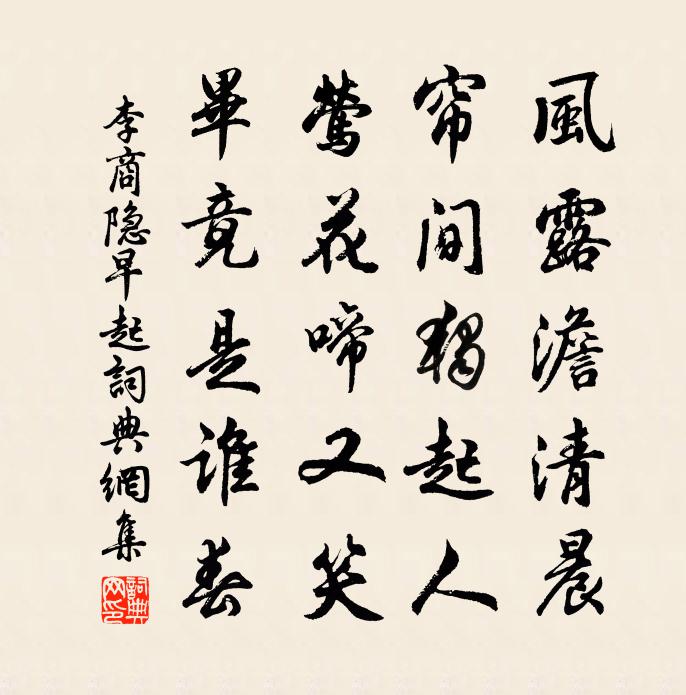 風露澹清晨
帘间獨起人
鶯花啼又笑
畢竟是誰春
李商隐早起詞典網集
詞典網印